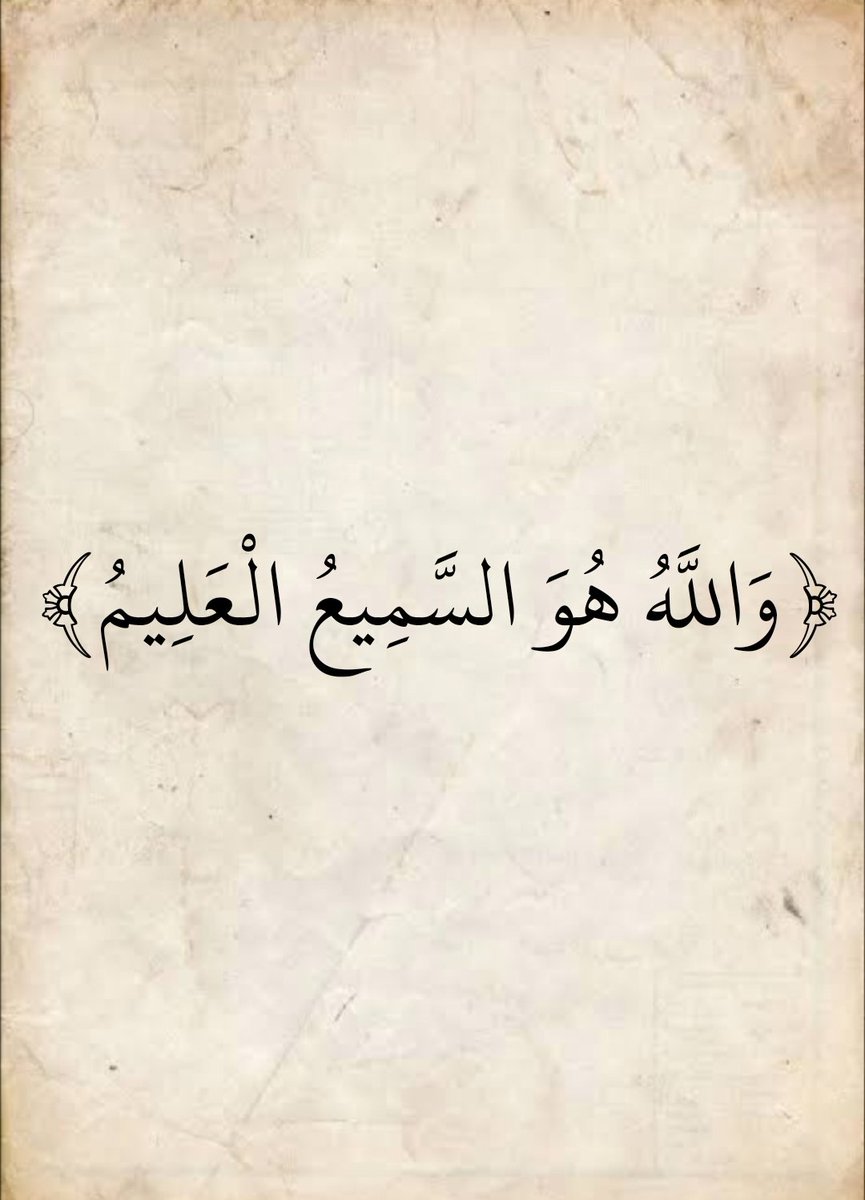 ﴿وَاللَّهُ هُوَ السَّمِيعُ الْعَلِيمُ﴾